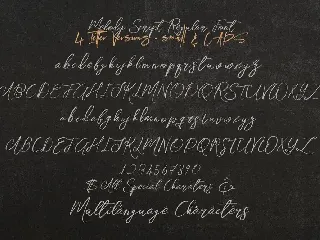 Melody Script Regular Font
4 Letter Versions - small & CAPS
abcdefghijklmnopqrstuvwxyz
ABCDEFGHIJKLMNOPQRSTUVWXYZ
abcdefghijklmnopqrstuvwxyz
ABCDEFGHIJKLMNOPQRSTUVWXYZ
1234567890
All Special Characters &
Multilanguage Characters